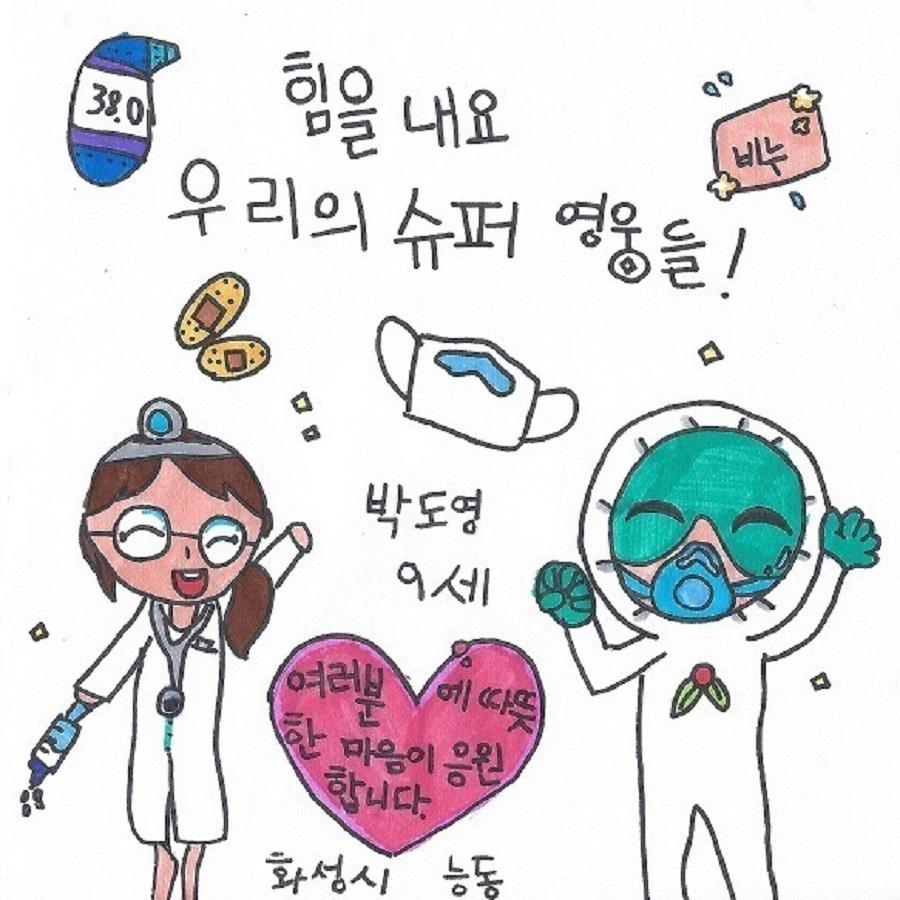 38.0
힘을 내요
비누
우리의 슈퍼 영웅들!
박도영
9세
여러분에 따뜻
한 마음이 응원
합니다.
화성시 능동